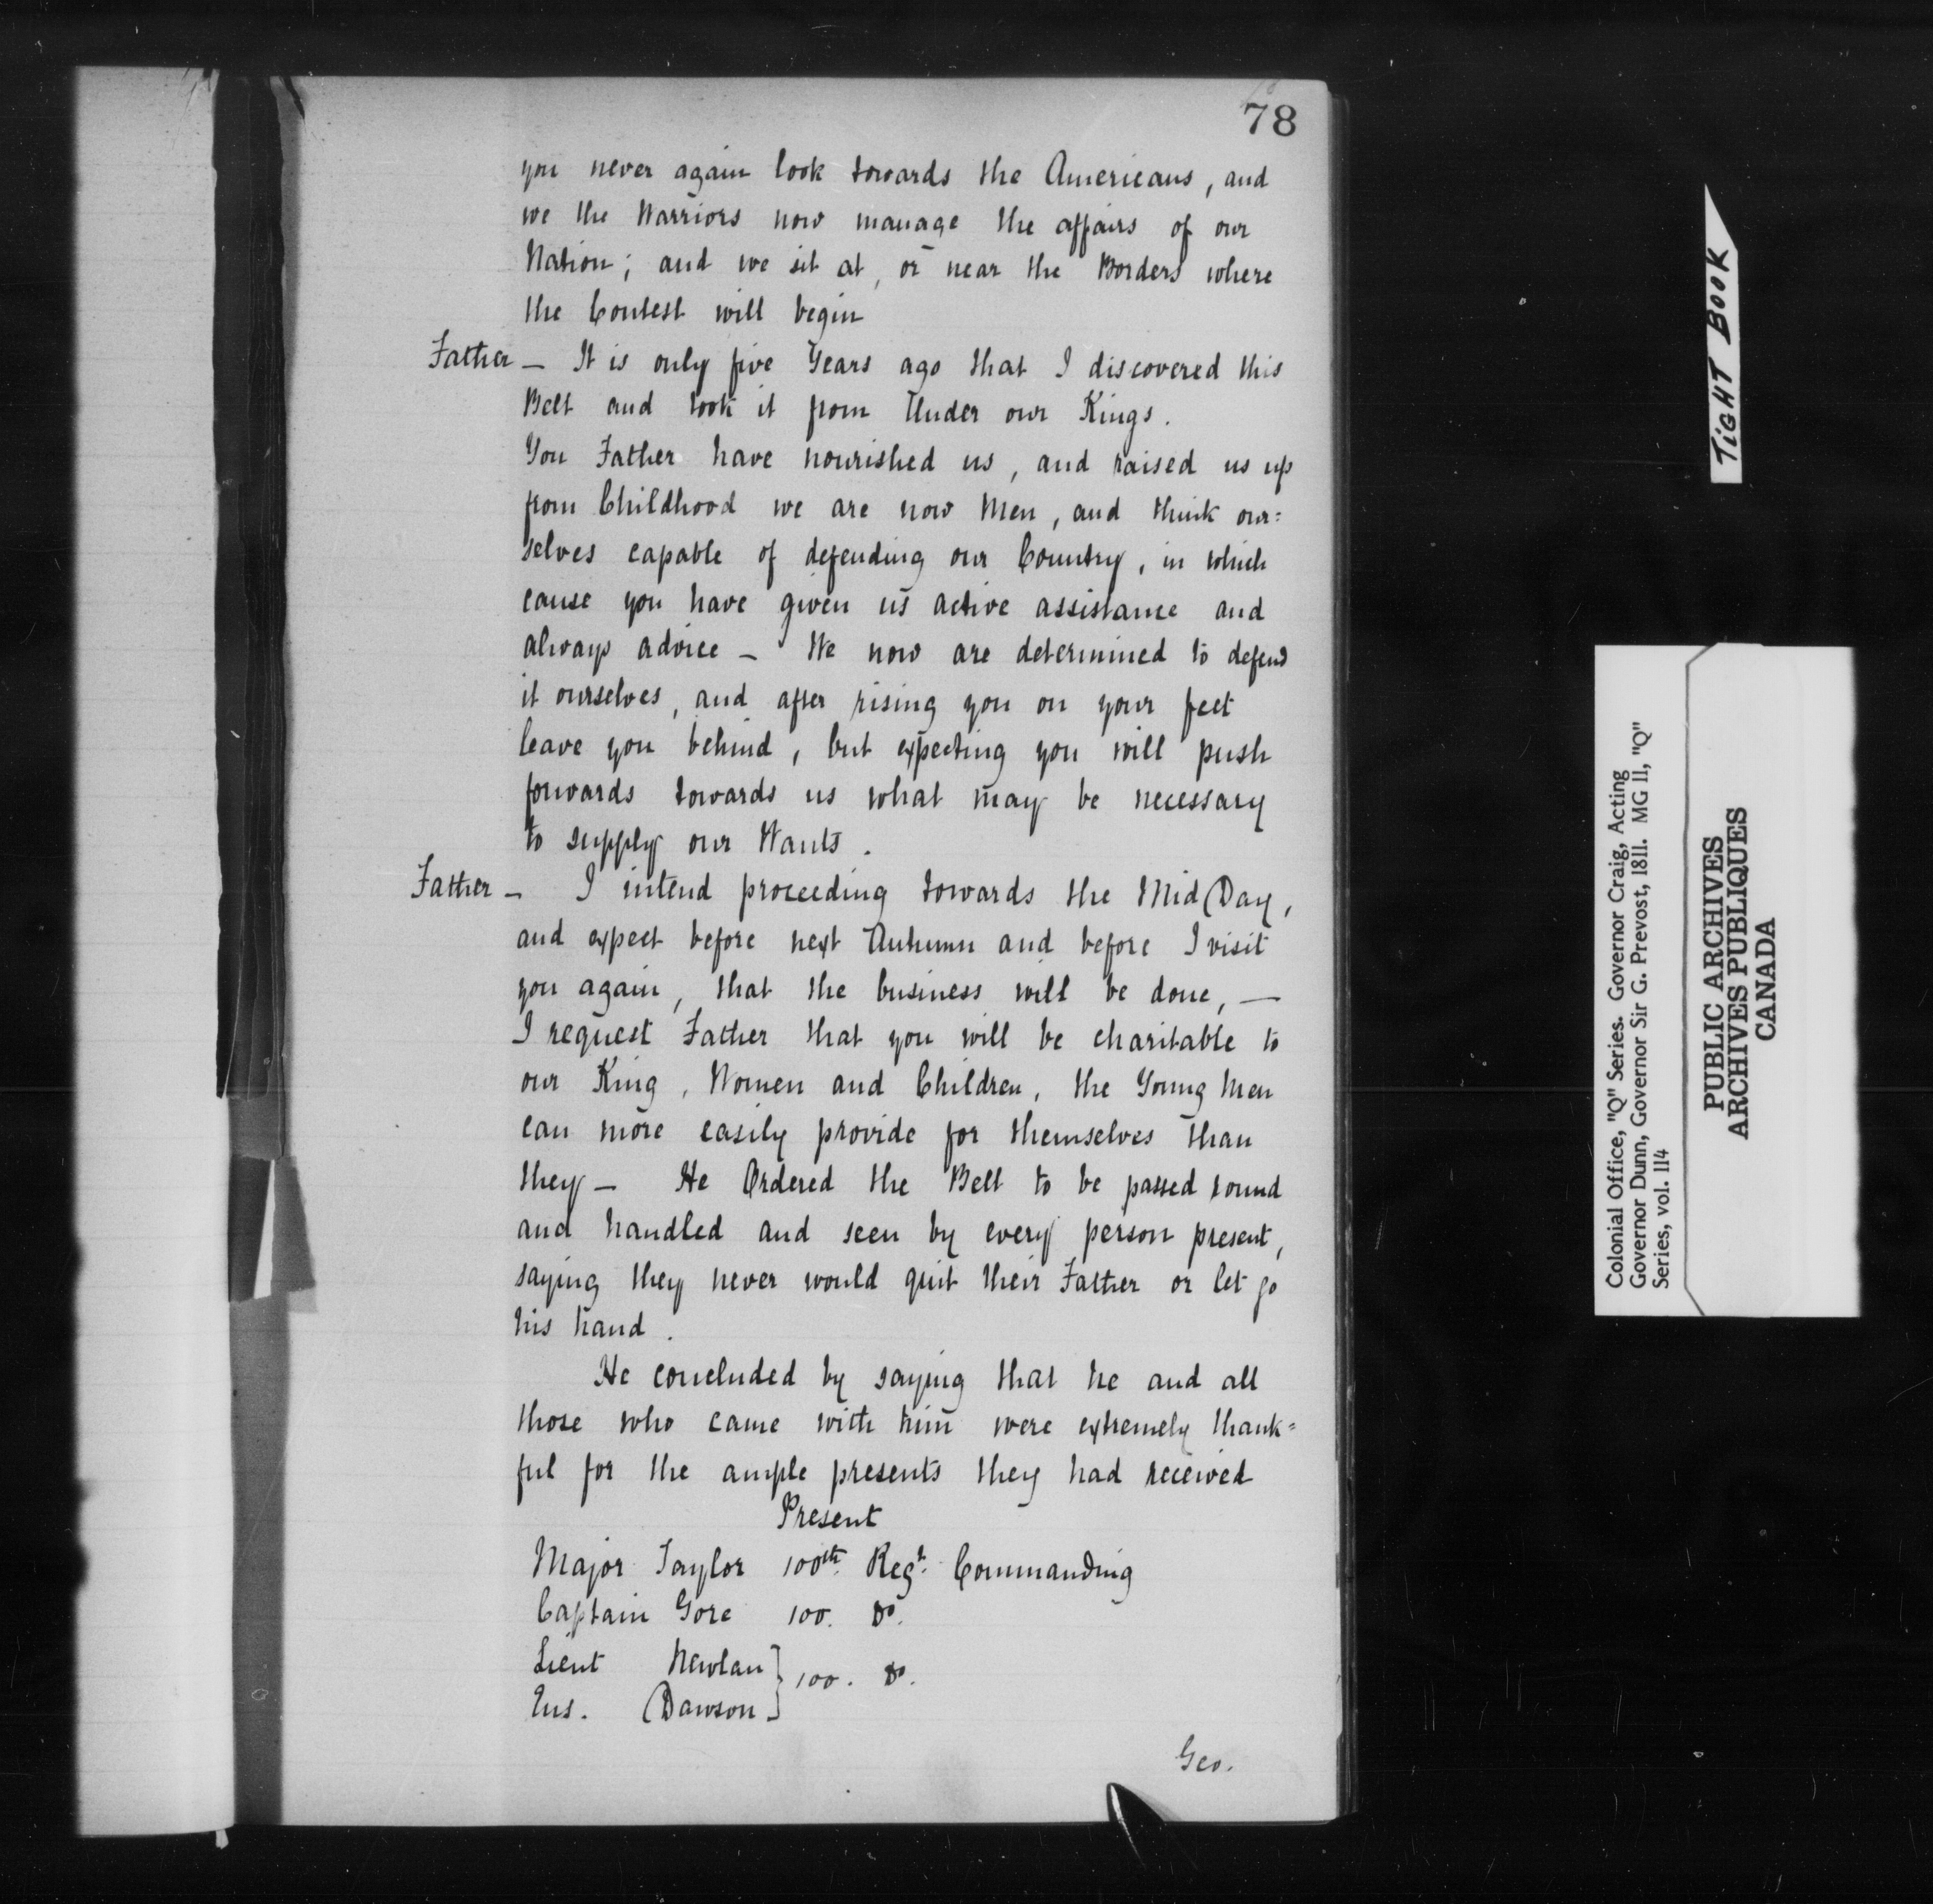 78
you never again look towards the Americans, and
we the Warriors now manage the affairs of our
Nation; and we sit at, or near the Borders where
the Contest will begin
Father — It is only five Years ago that I discovered this
Belt and took it from Under our Kings.
You Father have nourished us, and raised us up
from Childhood we are now Men, and think our=
selves capable of defending our Country, in which
cause you have given us active assistance and
always advice — We now are determined to defend
it ourselves, and after rising you on your feet
leave you behind, but expecting you will push
forwards towards us what may be necessary
to supply our Wants.
Father — I intend proceeding towards the Mid Day,
and expect before next Autumn and before I visit
you again, that the business will be done, —
I request Father that you will be charitable to
our King, Women and Children, the Young Men
can more easily provide for themselves than
they — He Ordered the Belt to be passed round
and handled and seen by every person present,
saying they never would quit their Father or let go
his hand.
He concluded by saying that he and all
those who came with him were extremely thank=
ful for the ample presents they had received
Present
Major Taylor 100th. Regt. Commanding
Captain Gore 100. Do.
Lieut Newlan
Ens. Dawson } 100. Do.
Geo.
TIGHT BOOK
Colonial Office, "Q" Series. Governor Craig, Acting
Governor Dunn, Governor Sir G. Prevost, 1811. MG 11, "Q"
Series, vol. 114
PUBLIC ARCHIVES
ARCHIVES PUBLIQUES
CANADA